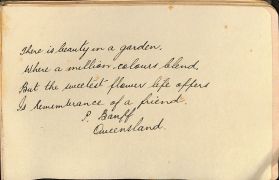 There is beauty in a garden.
Where a million colours blend,
But the sweetest flower life offers
Is remembrance of a friend.
P. Banff
Queensland.